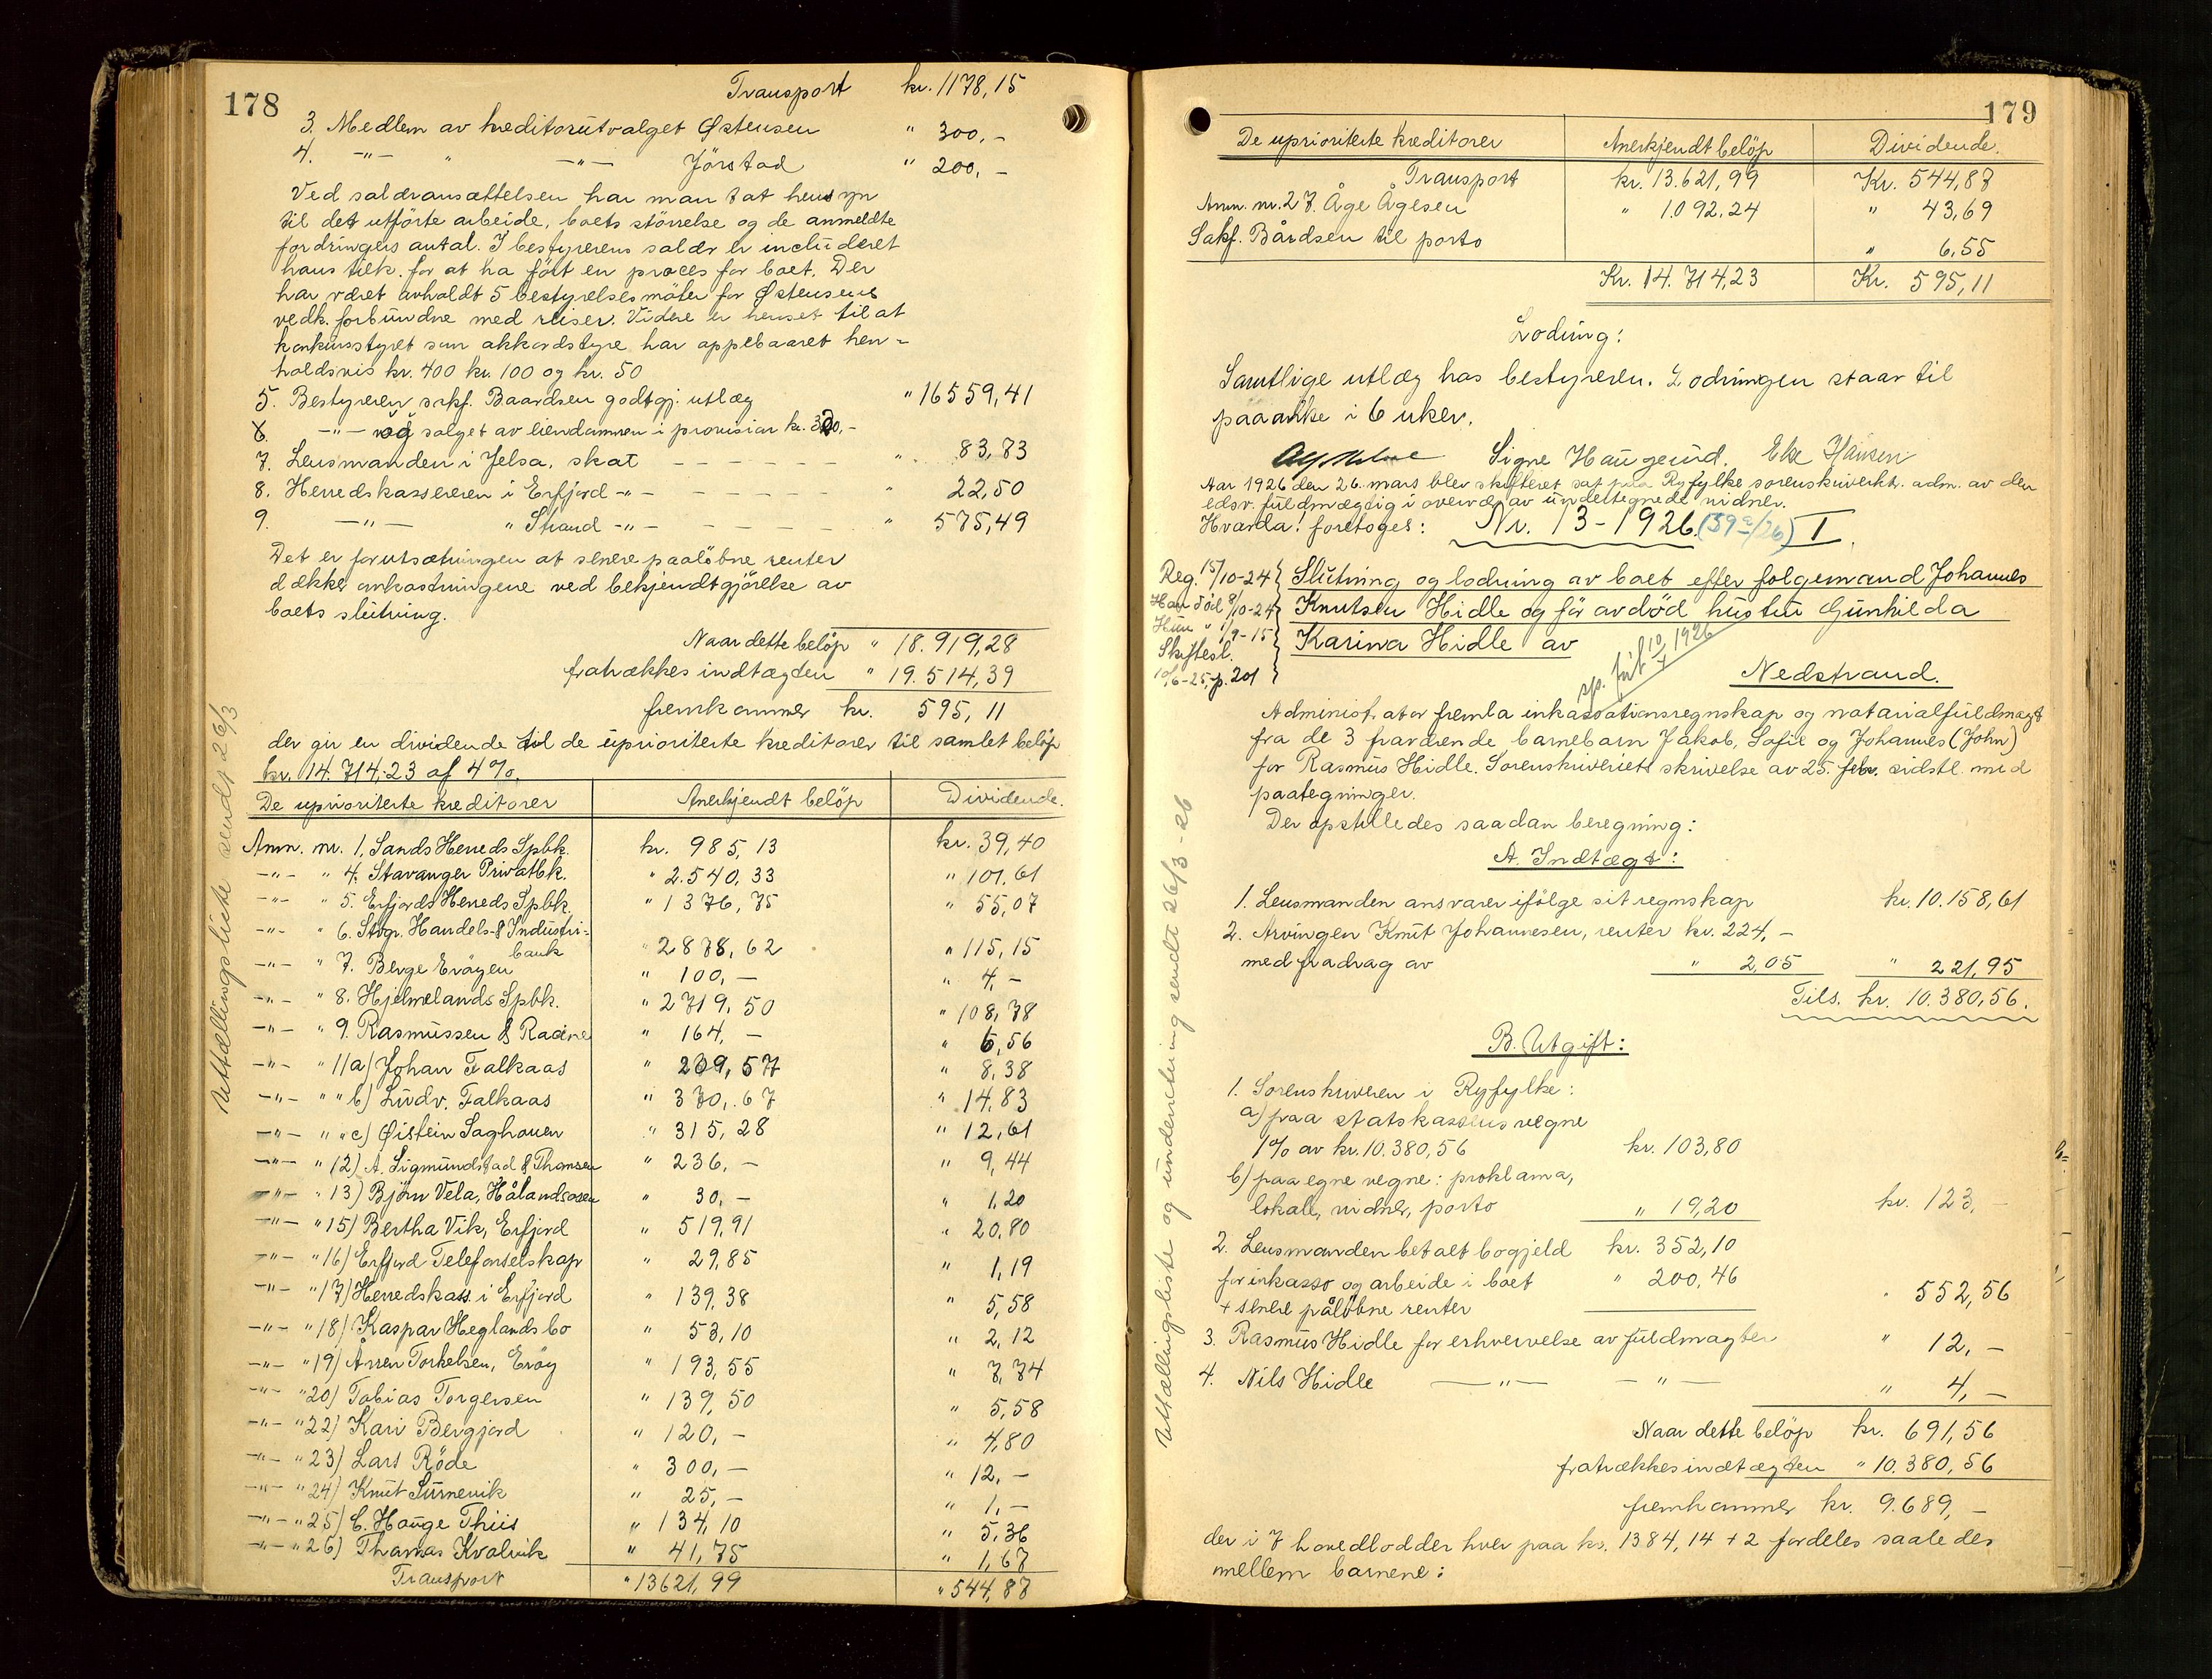 178
Transport kr. 1178,15
3. Medlem av kreditorutvalget Østensen " 300,-
4. -"- " -"- Jörstad " 200,-
Ved salæransættelsen har man tat hensyn
til det utförte arbeide, boets störrelse og de anmeldte
fordringers antal. I bestyrerens salær er includeret
hans tilk. for at ha fört en proces for boet. Der
har været avholdt 5 bestyrelsesmöter for Østensens
vedk. forbundne med reiser. Videre er henset til at
konkursstyret som akkordstyre har oppebaaret hen-
holdsvis kr. 400 kr. 100 og kr. 50
5. Bestyreren srkf. Baardsen godtgj. utlæg " 16559,41
6. -"- salget av eiendommen i provision kr. 320,-
7. Lensmanden i Jelsa, skat - - - - - - " 83,73
8. Herredskassereren i Erfjord -"- - - - - - " 22,50
9. -"- " Strand -"- - - - - - " 575,49
Det er forutsætningen at senere paalöbne renter
dækker omkostningene ved bekjendtgjörelse av
boets slutning.
Naar dette belöp " 18.919,28
fratrækkes indtægten " 19.514,39
fremkommer kr. 595,11
der gir en dividende til de uprioriterte kreditorer til samlet belöp
kr. 14.714,23 af 4%.
De uprioriterte kreditorer Anerkjendt belöp Dividende.
Anm. nr. 1. Sands Herreds Spbk. kr. 985,13 kr. 39,40
-"- " 4. Stavanger Privatbk. " 2.540,33 " 101,61
-"- " 5. Erfjords Herreds Spbk. " 1376,75 " 55,07
-"- " 6. Stvgr. Handels- & Industri-
bank " 2878,62 " 115,15
-"- " 7. Berge Eröyen " 100,- " 4,-
-"- " 8. Hjelmelands Spbk. " 2719,50 " 108,78
-"- " 9. Rasmussen & Racine " 164,- " 6,56
-"- " 11a) Johan Falkaas " 209,57 " 8,38
-"- " " b) Ludv. Falkaas " 370,67 " 14,83
-"- " " c) Øistein Laghouen " 315,28 " 12,61
-"- " 12) A. Sigmundstad & Thomsen " 236,- " 9,44
-"- " 13) Björn Vela, Hålandsosen " 30,- " 1,20
-"- " 15) Bertha Vik, Erfjord " 519,91 " 20,80
-"- " 16) Erfjord Telefonselskap " 29,85 " 1,19
-"- " 17) Herredskass. i Erfjord " 139,38 " 5,58
-"- " 18) Kaspar Heglands bo " 53,10 " 2,12
-"- " 19) Torkelsen, Eröy " 193,55 " 7,74
-"- " 20) Tobias Torgersen " 139,50 " 5,58
-"- " 22) Kari Bergjord " 120,- " 4,80
-"- " 23) Lars Röde " 300,- " 12,-
-"- " 24) Knut Surnevik " 25,- " 1,-
-"- " 25) C. Hauge Thiis " 134,10 " 5,36
-"- " 26) Thomas Kvalvik " 41,75 " 1,67
Transport " 13621,99 " 544,87
Uttællingsliste sendt 26/3
179
De uprioriterte kreditorer Anerkjendt belöp Dividende.
Transport kr. 13.621,99 Kr. 544,87
Anm. nr. 27. Åge Ågesen " 1.092.24 " 43,69
Sakf. Bårdsen til porto " 6,55
Kr. 14.714,23 Kr. 595,11
Lodning:
Samtlige utlæg has bestyreren. Lodningen staar til
paaanke i 6 uker.
Signe Haugerud. Else Hansen
Aar 1926 den 26. mars blev skifteret sat paa Ryfylke sorenskriverkt. adm. av den
edsv. fuldmægtig i overvær av undertegnede vidner.
Hvorda! foretoges: Nr. 13-1926 (39a/26) I.
Reg. 15/10-24 Slutning og lodning av boet efter folgemand Johannes
Han död 8/10-24 Knutsen Hidle og för avdöd hustru Gunhilda
Hun " 1/9-15 Karina Hidle av
Skiftesl. 10/6-25, p. 201
Nedstrand.
Administrator fremla inkassationsregnskap og notarialfuldmagt
fra de 3 fraværende barnebarn Jakob, Sofie og Johannes (John)
for Rasmus Hidle. Sorenskriveriets skrivelse av 25. febr. sidstl. med
paategninger.
Der opstilledes saadan beregning:
A. Indtægt:
1. Lensmanden ansvarer ifölge sit regnskap kr. 10.158,61
2. Arvingen Knut Johannesen, renter kr. 224,-
med fradrag av " 2,05 " 221,95
Tils. kr. 10.380,56.
B. Utgift:
1. Sorenskriveren i Ryfylke:
a) paa statskassens vegne
1% av kr. 10.380,56 kr. 103,80
b) paa egne vegne: proklama,
lokale, vidner, porto " 19,20 kr. 123,-
2. Lensmanden betalt bogjeld kr. 352,10
for inkasso og arbeide i boet " 200,46
+ senere pålöbne renter " 552,56
3. Rasmus Hidle for erhvervelse av fuldmagter " 12,-
4. Nils Hidle -"- -"- " 4,-
Naar dette belöp kr. 691,56
fratrækkes indtægten " 10.380,56
fremkommer kr. 9.689,-
der i 7 hovedlodder hver paa kr. 1384,14 + 2 fordeles saaledes
mellem barnene:
Uttællingsliste og underretning sendt 26/3-26